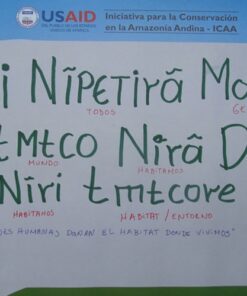 USAID
DEL PUEBLO DE LOS ESTADOS
UNIDOS DE AMÉRICA
Iniciativa para la Conservación
en la Amazonía Andina - ICAA
i Nĩpetirã Ma
TODOS
tmtco Nirã D
MUNDO HABITAMOS
Niri tmtcore
HABITAMOS HABITAT / ENTORNO
HUMANAS DONAN EL HABITAT DONDE VIVIMOS"